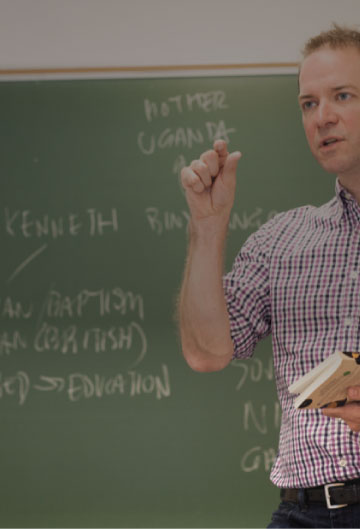 MOTHER
UGANDA
KENNETH
AN/BAPTISM
AN (BRITISH)
ED → EDUCATION
NI
GA